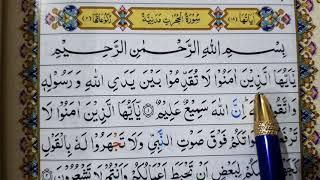 اٰيَاتُهَا (۱۸) سُوْرَةُ الْحُجُرٰتِ مَدَنِيَّةٌ رُكُوْعَاتُهَا (۲)
بِسْمِ اللهِ الرَّحْمٰنِ الرَّحِيْمِ
يٰٓاَيُّهَا الَّذِيْنَ اٰمَنُوْا لَا تُقَدِّمُوْا بَيْنَ يَدَيِ اللهِ وَرَسُوْلِهٖ
وَاتَّقُوا اِنَّ اللهَ سَمِيْعٌ عَلِيْمٌ يٰٓاَيُّهَا الَّذِيْنَ اٰمَنُوْا لَا
فَوْقَ صَوْتِ النَّبِيِّ وَلَا تَجْهَرُوْا لَهٗ بِالْقَوْلِ
لِبَعْضٍ اَنْ تَحْبَطَ اَعْمَالُكُمْ وَاَنْتُمْ لَا تَشْعُرُوْنَ